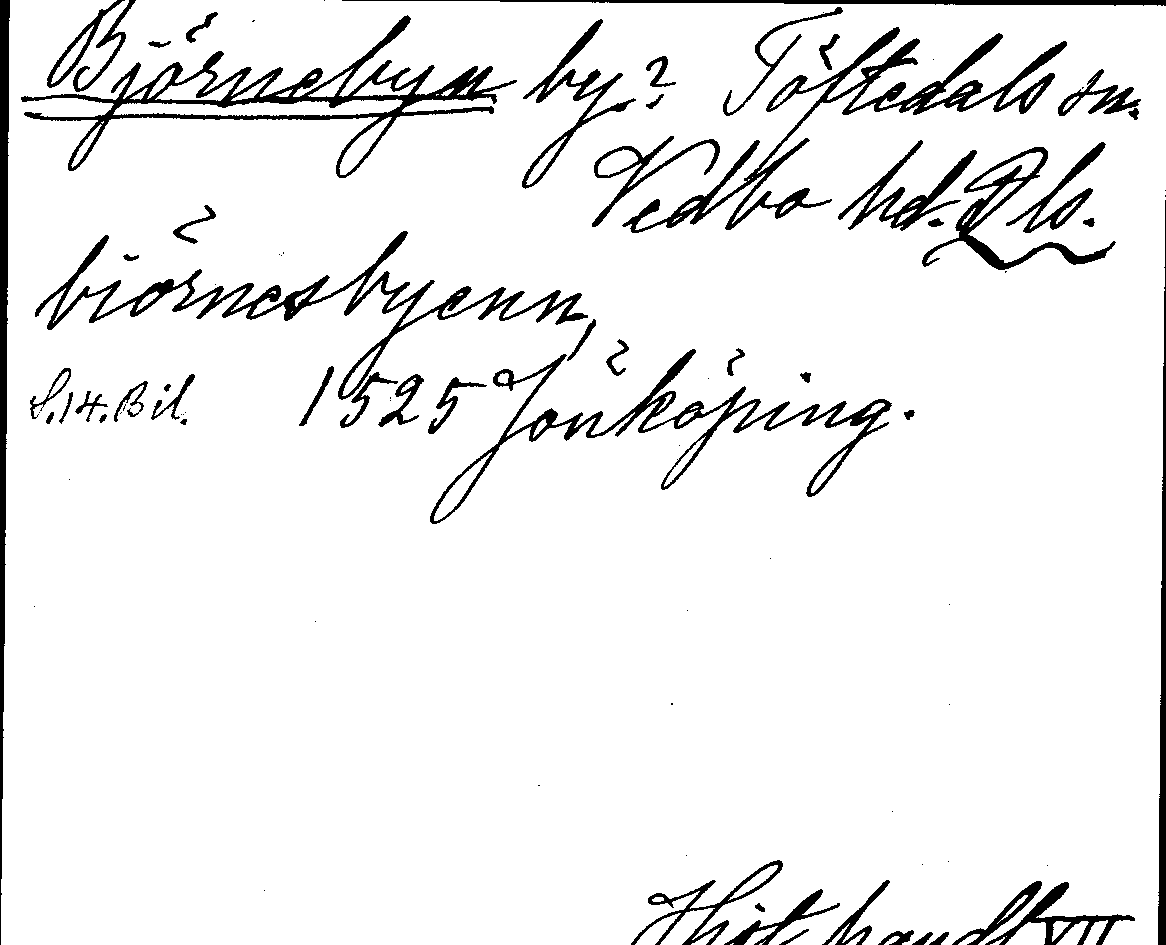 Björnebyn by? Töftedals sn.
Vedbo hd. Dls.
biörnesbyenn,
S.14.Bil. 1525 Jönköping.
Hist handl VII